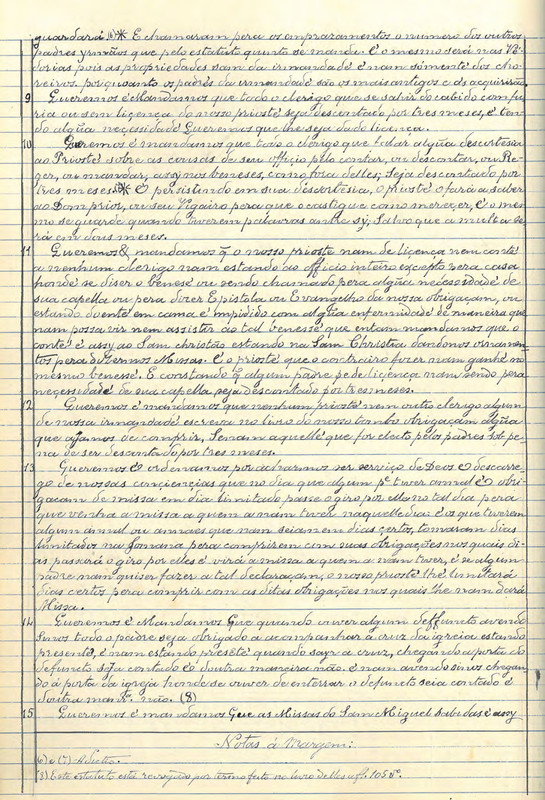 guardará.(6)* E chamaram pera os emprazamentos o numero dos outros
padres yrmãos que pelo estatuto quinto se manda. É o mesmo será nas Ves-
dorias pois as propriedades sam da irmandade é nam sómente dos cho-
reiros. porquanto os padres da irmandade são os mais antigos e as adquirirão.
9 Queremos é Mandamos que todo o clerigo que se sahir do cabido com fu-
ria ou sem licença do nosso prioste seja descontado por tres meses, é ten-
do algũa neçasidade Queremos que lhe seja dado licença.
10 Queremos é mandamos que todo o clerigo que falar algũa descortesia
ao Prioste sobre as cousas de seu offiçio pelo contar, ou descontar, ou Re-
ger, ou mandar, assy nos beneses, como fora delles, Seja descontado por
tres meses.(7)* É persistindo em sua descortesia, o prioste o fará a saber
ao Dom prior, ou seu Vigairo pera que o castigue como mereçer, É o mes-
mo se guarde quando tiverem palavras antre sy, Salvo que a multa se-
rá em dous meses.
11 Queremos & mandamos q̃ o nosso prioste nam de licença nem conte
a nenhum clerigo nam estando ao officio inteiro excepto pera casa
honde se diser o benese ou sendo chamado pera algũa necessidade de
sua capella ou pera dizer Epistola ou Evangelho da nossa obrigaçam, ou
estando doente em cama é impidido com algũa enfermidade de maneira que
nam possa vir nem assistir ao tal benesse que entam mandamos que o
conte é assy ao Sam christão estando na Sam Christia dando os ornamen-
tos pera dizermos Missas. É o prioste que o contrairo fizer nam ganhe no
mesmo benesse. E constando q̃ algum padre pede liçença nam sendo pera
neçessidade de sua capella seja descontado por tres meses.
12 Queremos é mandamos que nenhum prioste nem outro clerigo algum
de nossa irmandade escreva no livro do nosso tombo obrigaçam algũa
que ajamos de comprir, Senam aquelle que for electo pelos padres sob pe-
na de ser descontado por tres meses.
13 Queremos é ordenamos por acharmos ser serviço de Deos é descarre-
go de nossas conçiençias que no dia que algum pe tiver annal é obri-
gaçam de missa em dia limitado passe o giro por elle no tal dia pera
que venha a missa a quem a nam tiver naquelle dia: é os que tiverem
algum annal ou annaes que nam seiam em dias çertos, tomaram dias
limitados na Somana pera comprirem com suas obrigações nos quais di-
as passará o giro por elles é virá a missa a quem a nam tever, é se algum
padre nam quiser fazer a tal declaraçam, o nosso prioste lhe limitará
dias certos pera cumprir com as ditas obrigações nos quais lhe nam dará
Missa.
14 Queremos é Mandamos Que quando ouver algum deffuncto avendo
Sinos todo o padre seja obrigado a acompanhar a cruz da igreia estando
presente, é nam estando presẽte quando sayr a cruz, chegando a porta do
defuncto seja contado é doutra maneira não. é nam avendo sinos chegan-
do á porta da igreja honde se ouver de enterrar o defuncto seia contado é
doutra manra. não. (8)
15 Queremos é mandamos Que as Missas do Sam Miguel sabidas é assy
Notas á Margem:
(6) e (7) Adictos.
(8) Este estatuto está revogado por termo feito no livro delles a f. 105 vo.